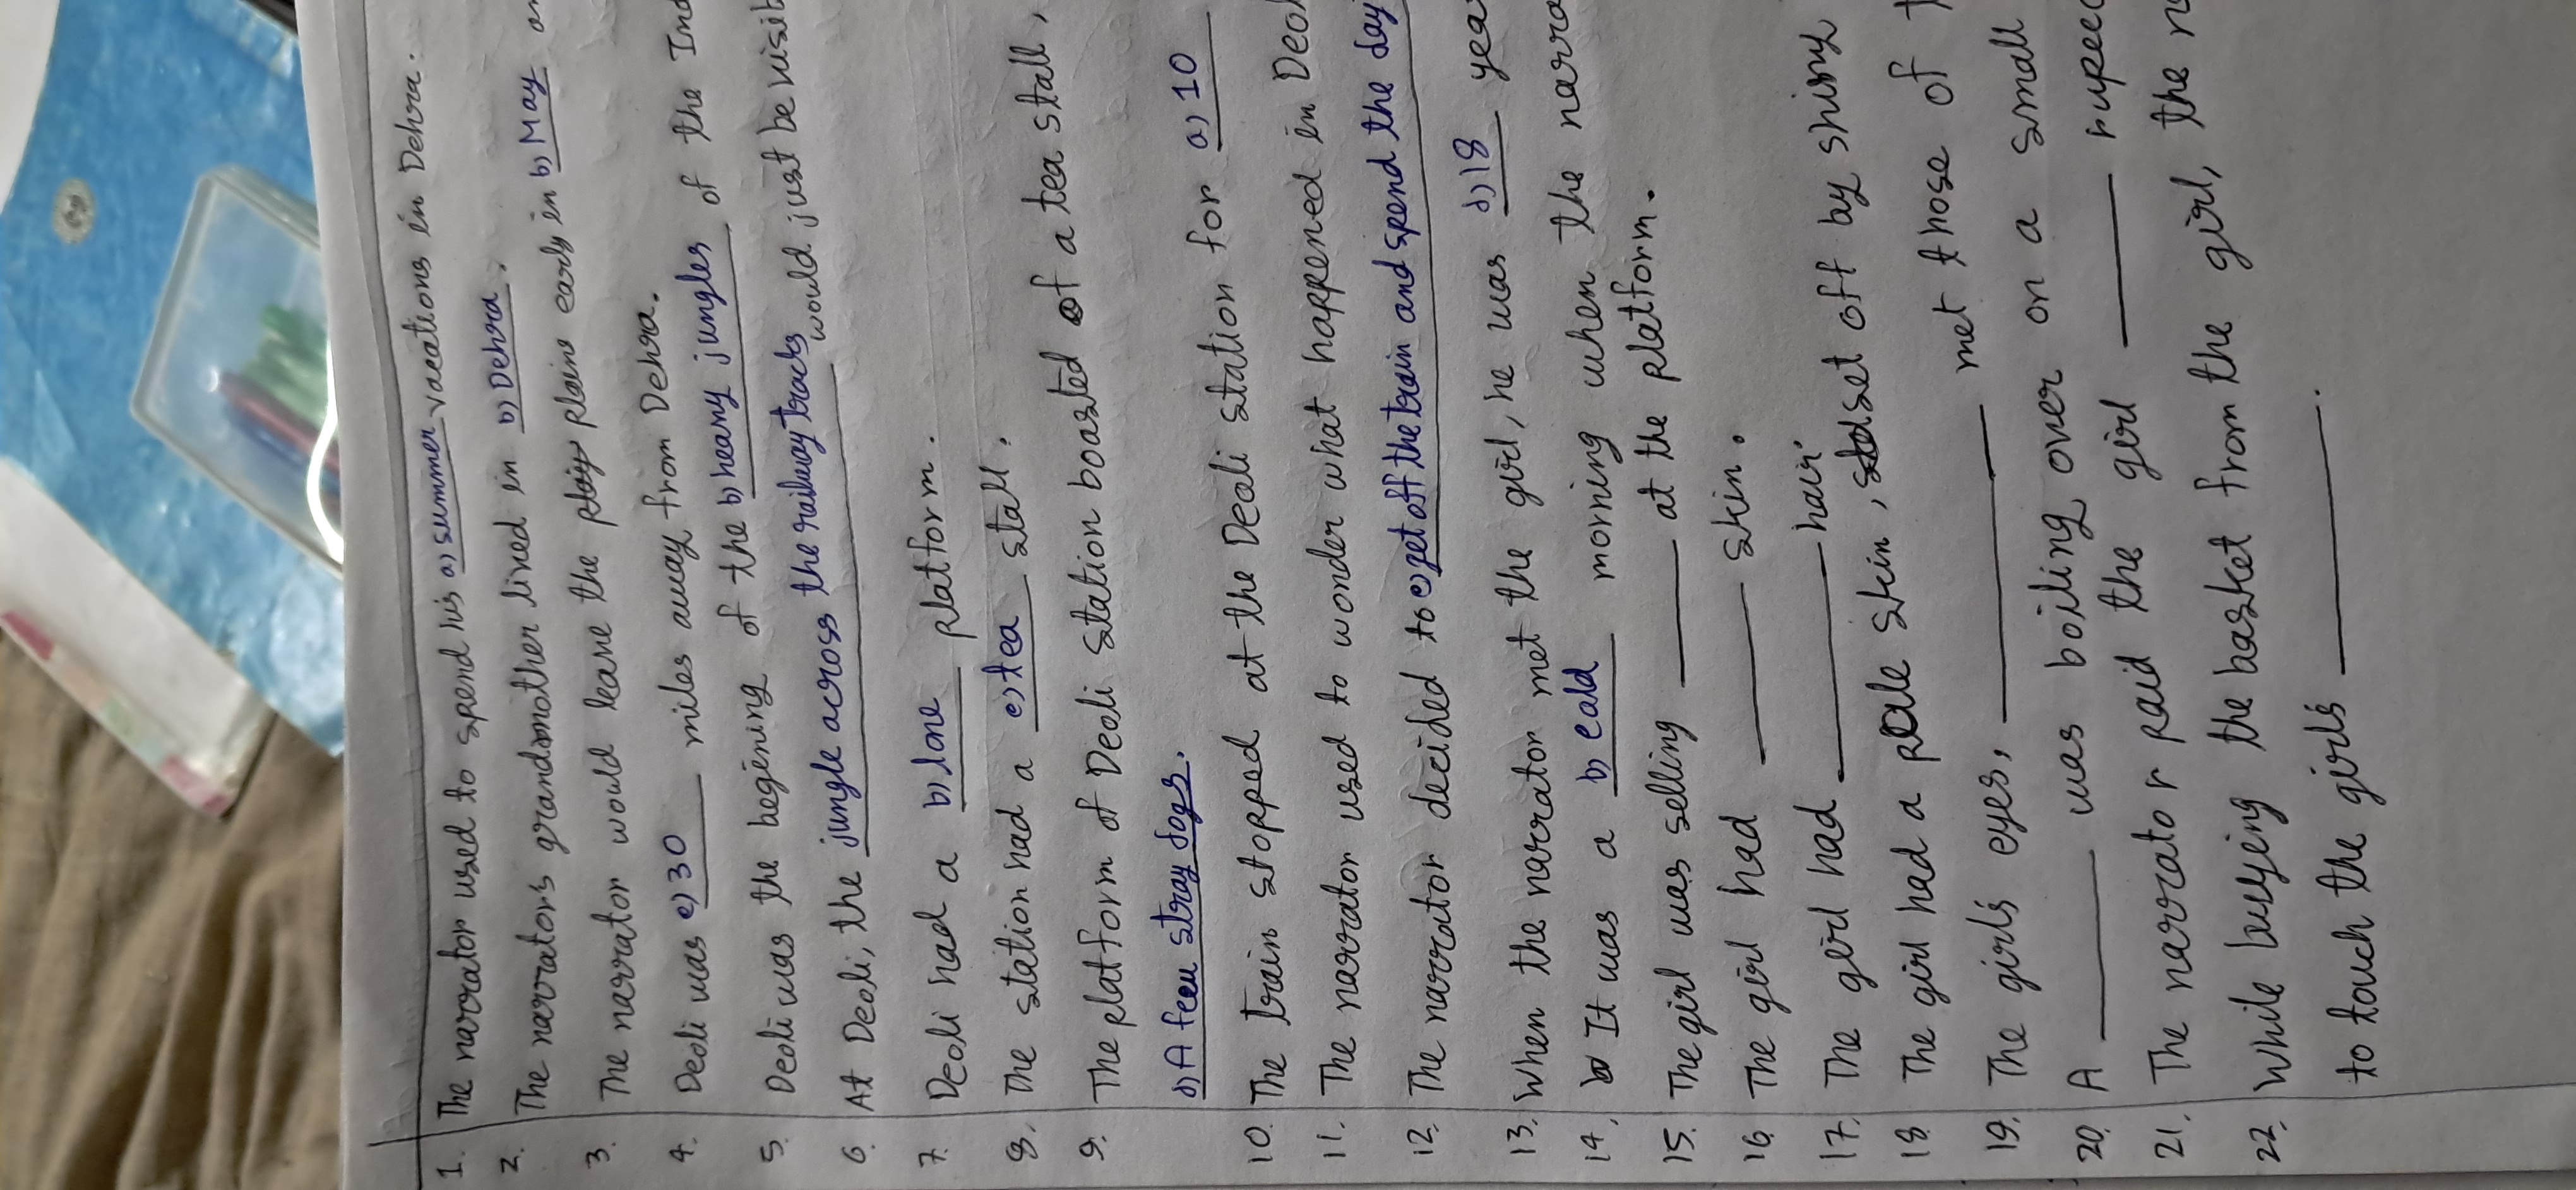 1. The narrator used to spend his a) summer vacations in Dehra.
2. The narrator's grandmother lived in b) Dehra.
3. The narrator would leave the plains early in b) May
4. Deoli was c) 30 miles away from Dehra.
5. Deoli was the begining of the b) heavy jungles of the Ind
6. At Deoli, the jungle across the railway tracks would just be visib
7. Deoli had a b) lone platform.
8. The station had a c) tea stall.
9. The platform of Deoli station boasted of a tea stall,
d) A few stray dogs.
10. The train stopped at the Deoli station for a) 10
11. The narrator used to wonder what happened in Deol
12. The narrator decided to c) get off the train and spend the day
13. When the narrator met the girl, he was d) 18 yea
14. It was a b) cold morning when the narra
15. The girl was selling ____ at the platform.
16. The girl had ____ skin.
17. The girl had ____ hair.
18. The girl had a pale skin, set off by shiny
19. The girl's eyes, ____ met those of t
20. A ____ was boiling over on a small
21. The narrator paid the girl ____ rupee
22. While buying the basket from the girl, the n
to touch the girl's ____.